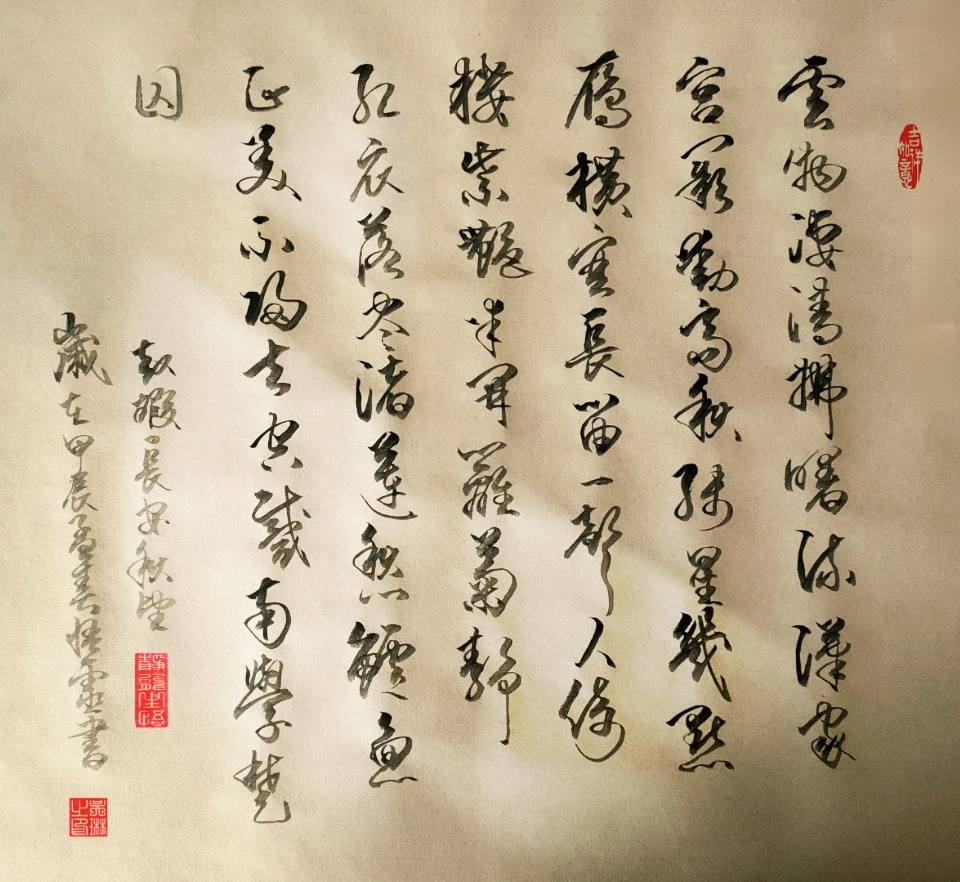 吉祥如意
雲物淒清拂曙流漢家
宮闕動高秋殘星幾點
雁橫塞長笛一聲人倚
樓紫艷半開籬菊靜
紅衣落盡渚蓮愁鱸魚
正美不歸去空戴南學楚
囚
趙嘏長安秋望
歲在甲辰孟春悟靈書